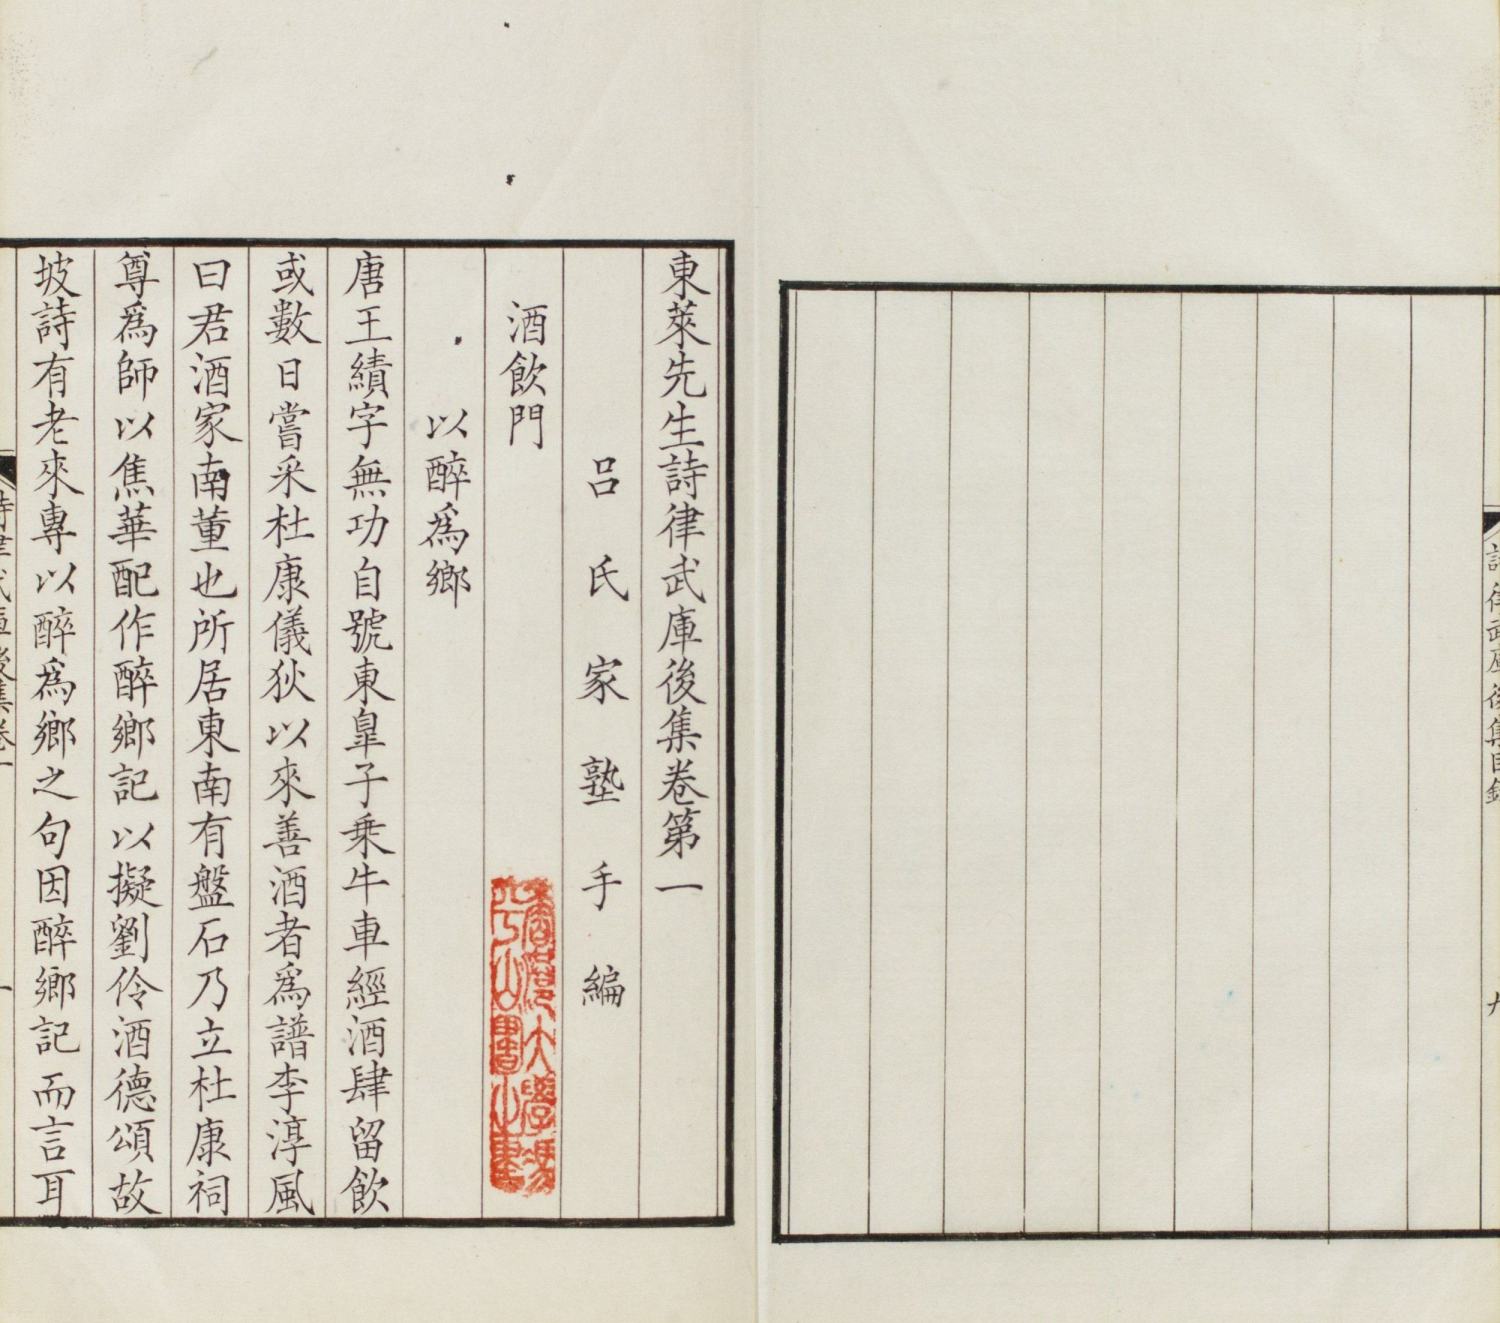 詩律武庫後集目錄
九
東萊先生詩律武庫後集卷第一
呂氏家塾手編
酒飲門
以醉爲鄉
唐王績字無功自號東皐子乘牛車經酒肆留飲
或數日嘗采杜康儀狄以來善酒者爲譜李淳風
曰君酒家南董也所居東南有盤石乃立杜康祠
尊爲師以焦華配作醉鄉記以擬劉伶酒德頌故
坡詩有老來專以醉爲鄉之句因醉鄉記而言耳
詩律武庫後集卷一
一